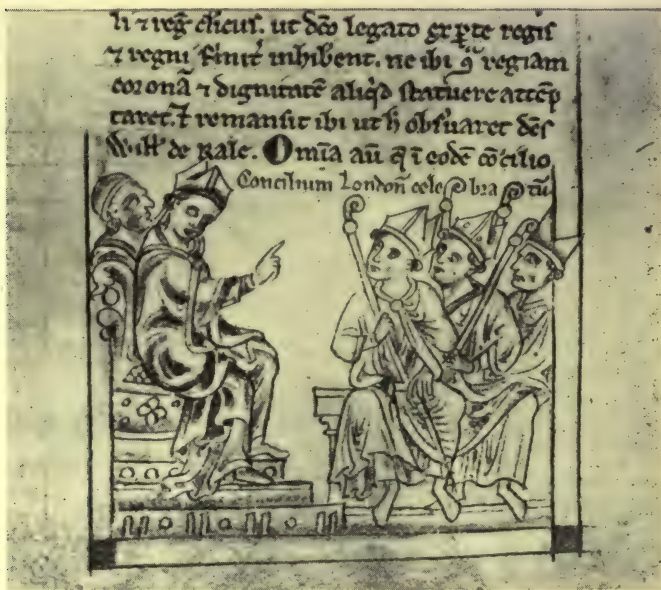 li ⁊ reḡ clicus. ut dc̄o legato ex ꝑte regis
⁊ regni finit̾ inhiberent. ne ibi ꝯ̄ regiam
coronā ⁊ dignitatē aliqd statuere attēp
taret. ⁊ remansit ibi ut h̄ obs̾uaret dc̄s
Will̾ de Rale. Omīa aū q̄ ī eodē cōcilio
Concilium Londoñ cele bra tū